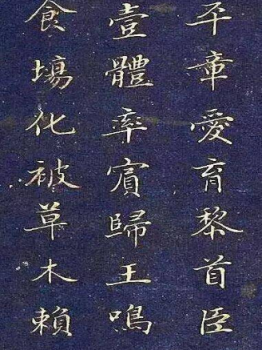 平章愛育黎首臣
壹體率賓歸王鳴
食場化被草木賴